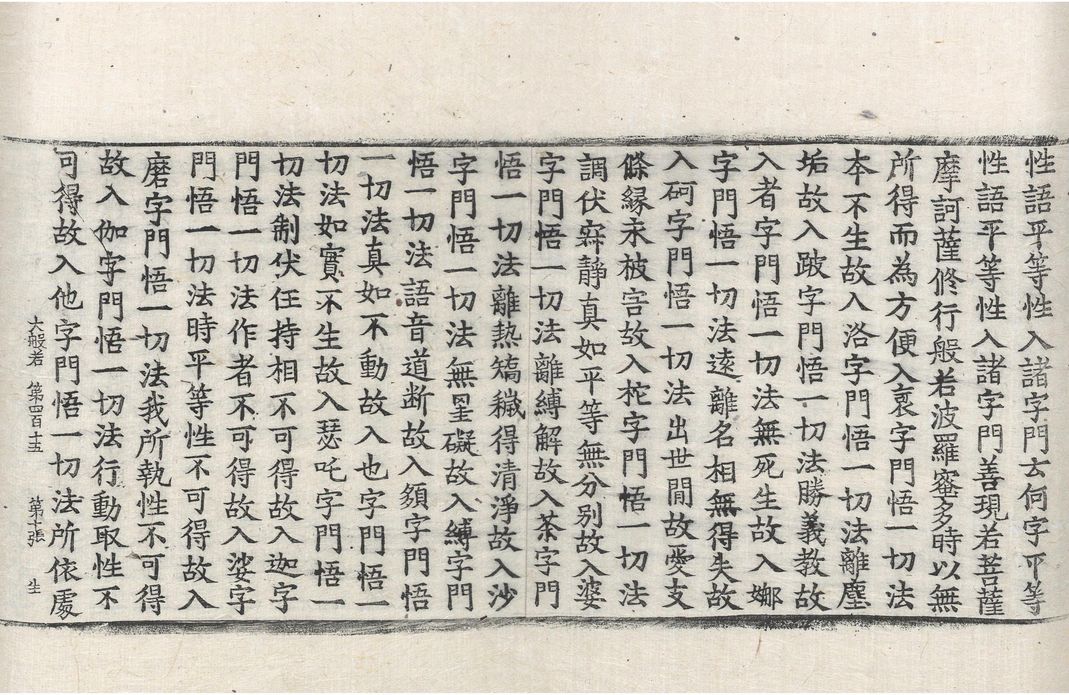 性語平等性入諸字門云何字平等
性語平等性入諸字門善現若菩薩
摩訶薩修行般若波羅蜜多時以無
所得而為方便入裒字門悟一切法
本不生故入洛字門悟一切法離塵
垢故入跛字門悟一切法勝義教故
入者字門悟一切法無死生故入娜
字門悟一切法遠離名相無得失故
入砢字門悟一切法出世間故愛支
條縁永被害故入柁字門悟一切法
調伏寂靜真如平等無分別故入婆
字門悟一切法離縛解故入荼字門
悟一切法離熱矯穢得清淨故入沙
字門悟一切法無罣礙故入縛字門
悟一切法語音道断故入頞字門悟
一切法真如不動故入也字門悟一
切法如實不生故入瑟吒字門悟一
切法制伏任持相不可得故入迦字
門悟一切法作者不可得故入婆字
門悟一切法時平等性不可得故入
磨字門悟一切法我所執性不可得
故入伽字門悟一切法行動取性不
可得故入他字門悟一切法所依處
大般若 第四百十五 第十張 生